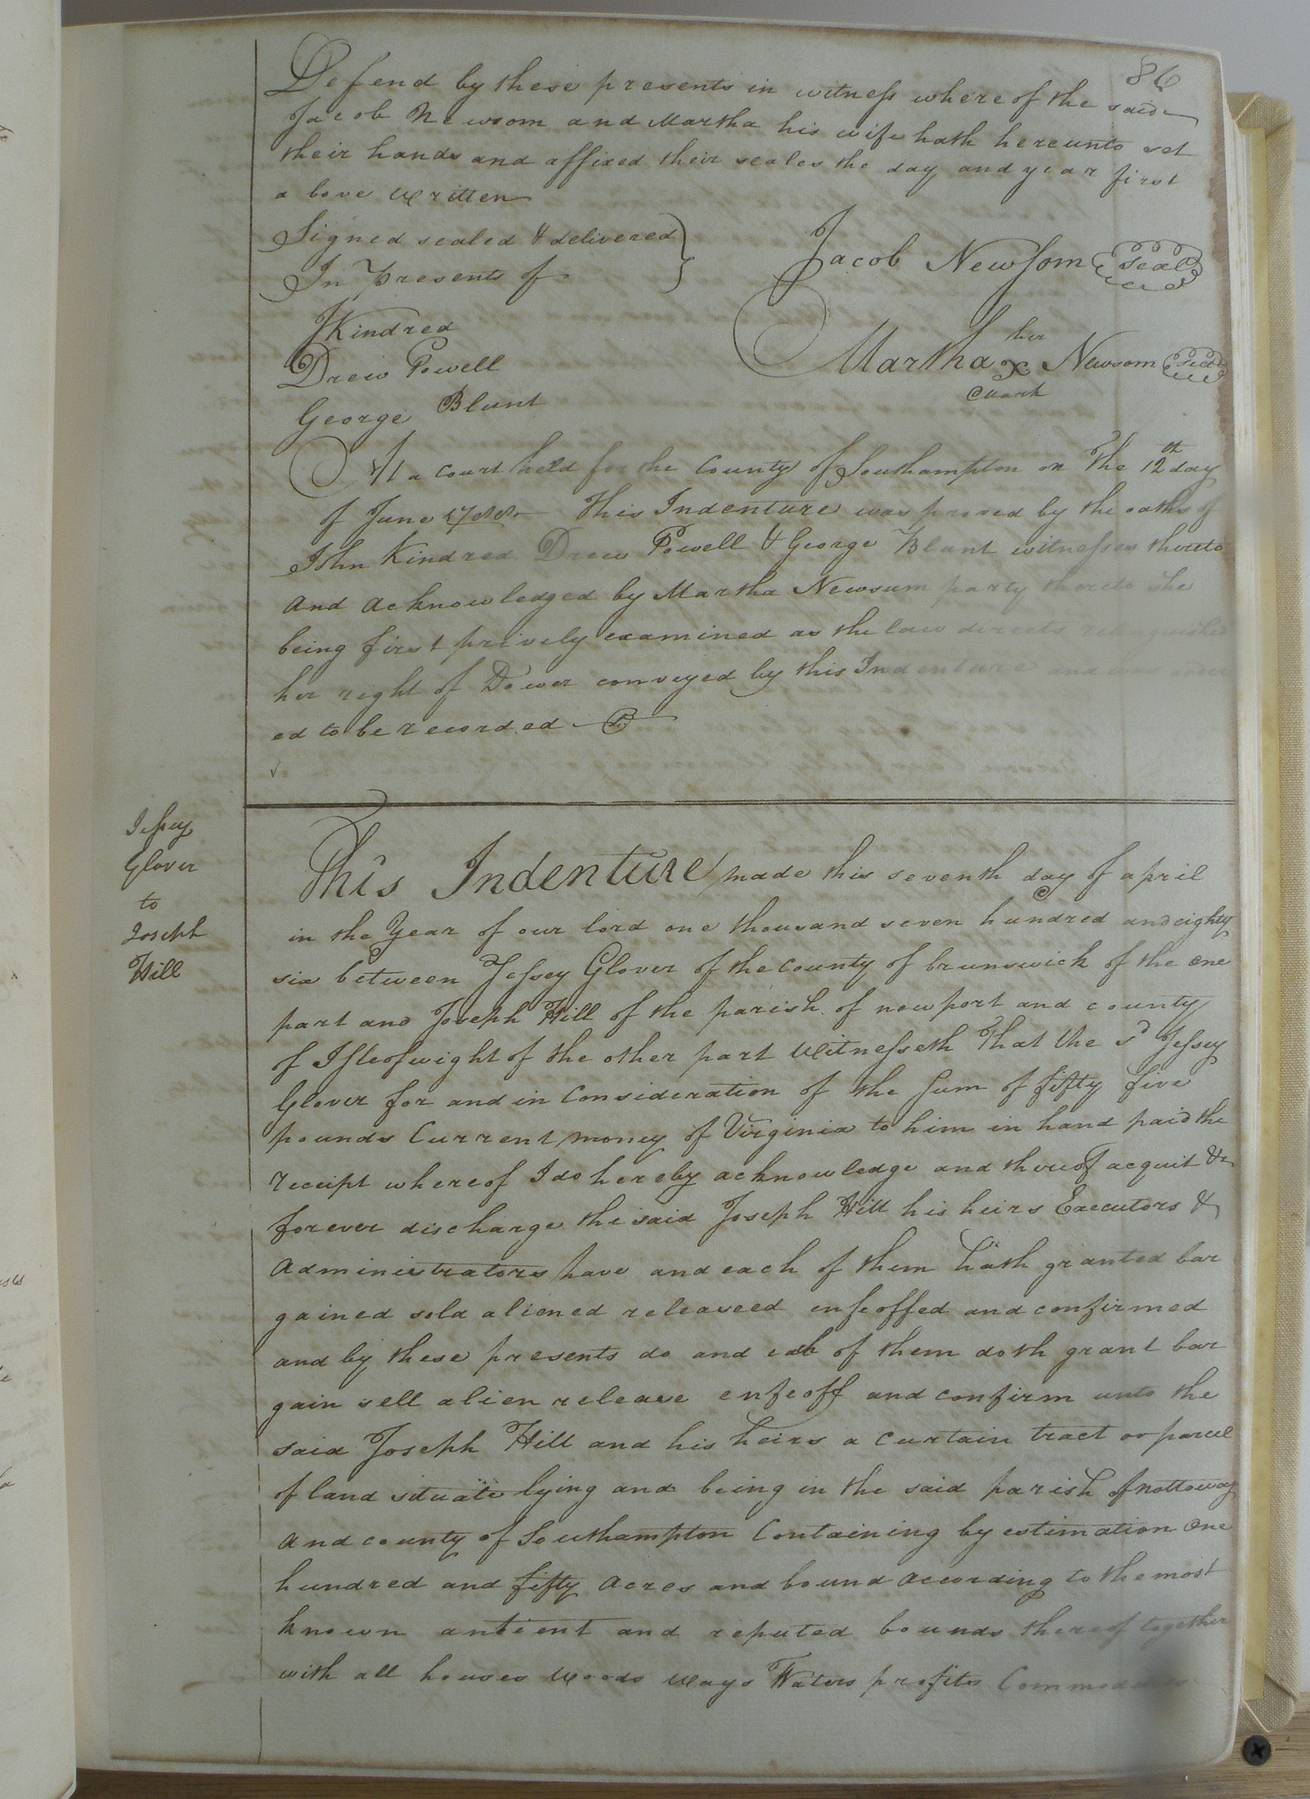 86
Defend by these presents in witness whereof the said
Jacob Newsom and Martha his wife hath hereunto set
their hands and affixed their seales the day and year first
above written
Signed sealed & delivered
In Presents of
Jacob Newsom seal
JKindred
her
Drew Powell
Martha X Newsom seal
mark
George Blunt
At a court held for the County of Southampton on the 12th day
of June This Indenture was proved by the oaths of
John Kindred Drew Powell & George Blunt witnesses thereto
and acknowledged by Martha Newsum party thereto she
being first privily examined as the law directs relinquished
her right of Dower conveyed by this Indenture and was
ed to be recorded
Jessey
Glover
to
Joseph
Hill
This Indenture made this seventh day of april
in the Year of our lord one thousand seven hundred and eighty
six between Jessey Glover of the county of brunswick of the one
part and Joseph Hill of the parish of newport and county
of Isleofwight of the other part Witnesseth That the sd Jessey
Glover for and in Consideration of the Sum of fifty five
pounds Current money of Virginia to him in hand paid the
receipt whereof I do hereby acknowledge and thereof acquit &
forever discharge the said Joseph Hill his heirs Executors &
Administrators have and each of them hath granted bar
gained sold aliened releaseed enfeoffed and confirmed
and by these presents do and each of them doth grant bar
gain sell alien release enfeoff and confirm unto the
said Joseph Hill and his heirs a Curtain tract or parcel
of land situate lying and being in the said parish of nottoway
and county of Southampton Containing by estimation One
hundred and fifty Acres and bound According to the most
known antient and reputed bounds thereof together
with all houses Woods Ways Waters profits